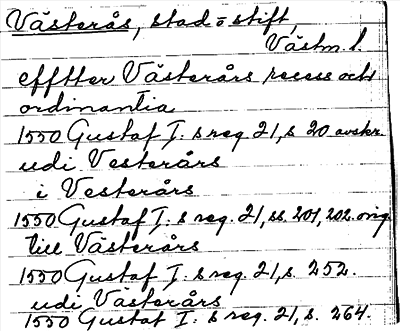 Västerås, stad o stift,
Västm. l.
efftter Västerårs recess och
ordinantia
1550 Gustaf I:s reg. 21, s 20 avskr.
udi Vesterårs
i Vesterårs
1550 Gustaf I:s reg. 21, ss. 201, 202. orig.
till Västerårs
1550 Gustaf I:s reg. 21, s. 252.
udi Västerårs
1550 Gustaf I:s reg. 21, s. 264.